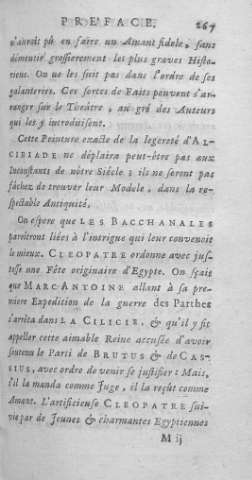 PREFACE. 267
n'auroit pû en faire un Amant fidele, sans
démentir grossierement les plus graves Histo-
riens. On ne les suit pas dans l'ordre de ses
galanteries. Ces sortes de Faits peuvent s'ar-
ranger sur le Theatre, au gré des Auteurs
qui les y introduisent.
Cette Peinture exacte de la legereté d'AL-
CIBIADE ne déplaira peut-être pas aux
Inconstants de nôtre Siécle : ils ne seront pas
fâchez de trouver leur Modele, dans la re-
spectable Antiquité.
On espere que LES BACCHANALES
paroîtront liées à l'intrigue qui leur convenoit
le mieux. CLEOPATRE ordonne avec jus-
tesse une Fête originaire d'Egypte. On sçait
que MARC-ANTOINE allant à sa pre-
miere Expedition de la guerre des Parthes
s'arrêta dans LA CILICIE, & qu'il y fit
appeller cette aimable Reine accusée d'avoir
soutenu le Parti de BRUTUS & de CAS-
SIUS, avec ordre de venir se justifier : Mais,
s'il la manda comme Juge, il la reçût comme
Amant. L'artificieuse CLEOPATRE sui-
vie par de Jeunes & charmantes Egyptiennes
M ij